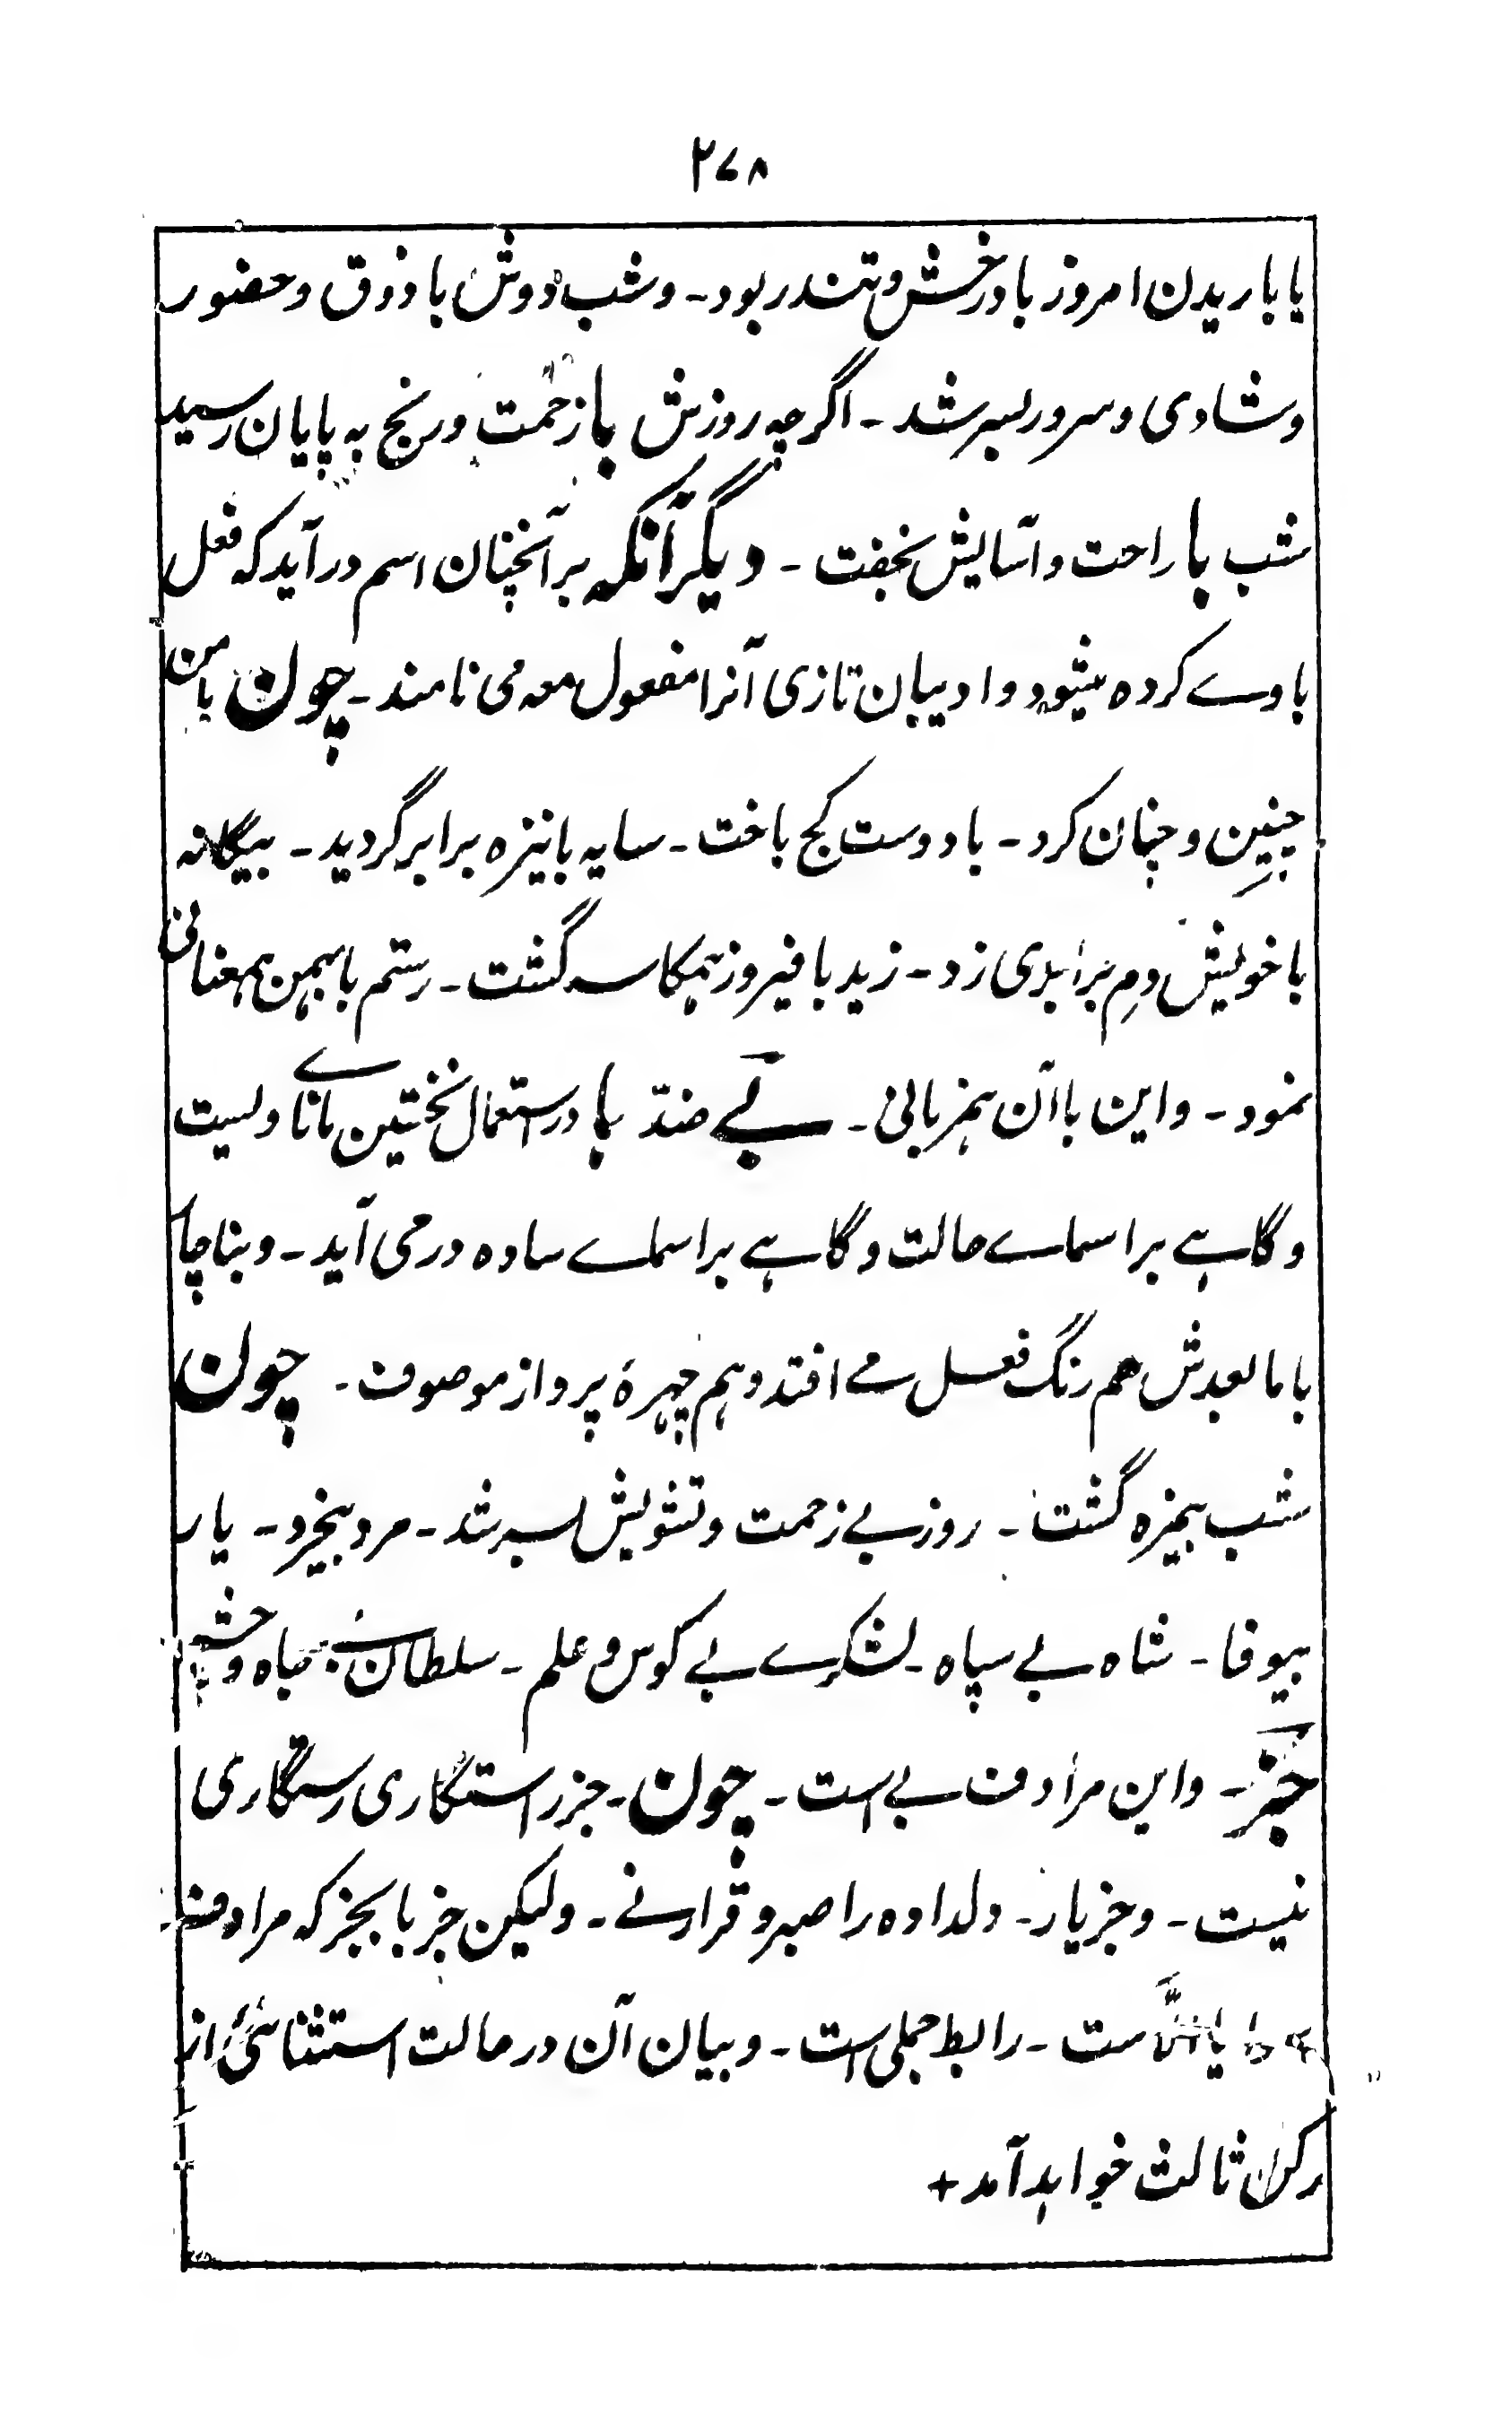 ۲۷۸
یا باریدن امروز با درخش و تندر بود۔ و شب دوش با ذوق و حضور
و شادی و سرور بسر شد۔ اگرچه روزش با زحمت و رنج به پایان رسید
شب با راحت و آسایش نخفت۔ دیگر آنکه بر آنچنان اسم درآید که فعل
باوے کرده میشود و ادیبان تازی آنرا مفعول معه می نامند۔ چون بامن
چنین و چنان کرد۔ با دوست کج باخت۔ سایه با نیزه برابر گردید۔ بیگانه
با خویش دمِ برابری زد۔ زید با فیروز همکاسه گشت۔ رستم با بهمن همعنانی
نمود۔ و این با آن همزبانی۔ بے ضدّ با در استعمال نخستین ماناے ولیست
و گاہے بر اسماے حالت و گاہے بر اسماے ساده درمی آید۔ و بناچار
با مابعدش هم رنگ فعل مے افتد و هم چهرهٔ پرواز موصوف۔ چون
شب بیمزه گشت۔ روز بے زحمت و تشویش بسر شد۔ مرد بیخرد۔ یار
بیوفا۔ شاه بے سپاه۔ لشکرے بے کوس و علم۔ سلطان بے جاه و حشم
جز۔ و این مرادف بے است۔ چون۔ جز راستگاری رستگاری
نیست۔ و جز یار۔ دلداده را صبر و قرار نے۔ ولیکن جز یا بجز که مرادف
یا الّا ست۔ رابط جملی است۔ و بیان آن در حالت استثنائیٔ از
رکن ثالث خواہد آمد+